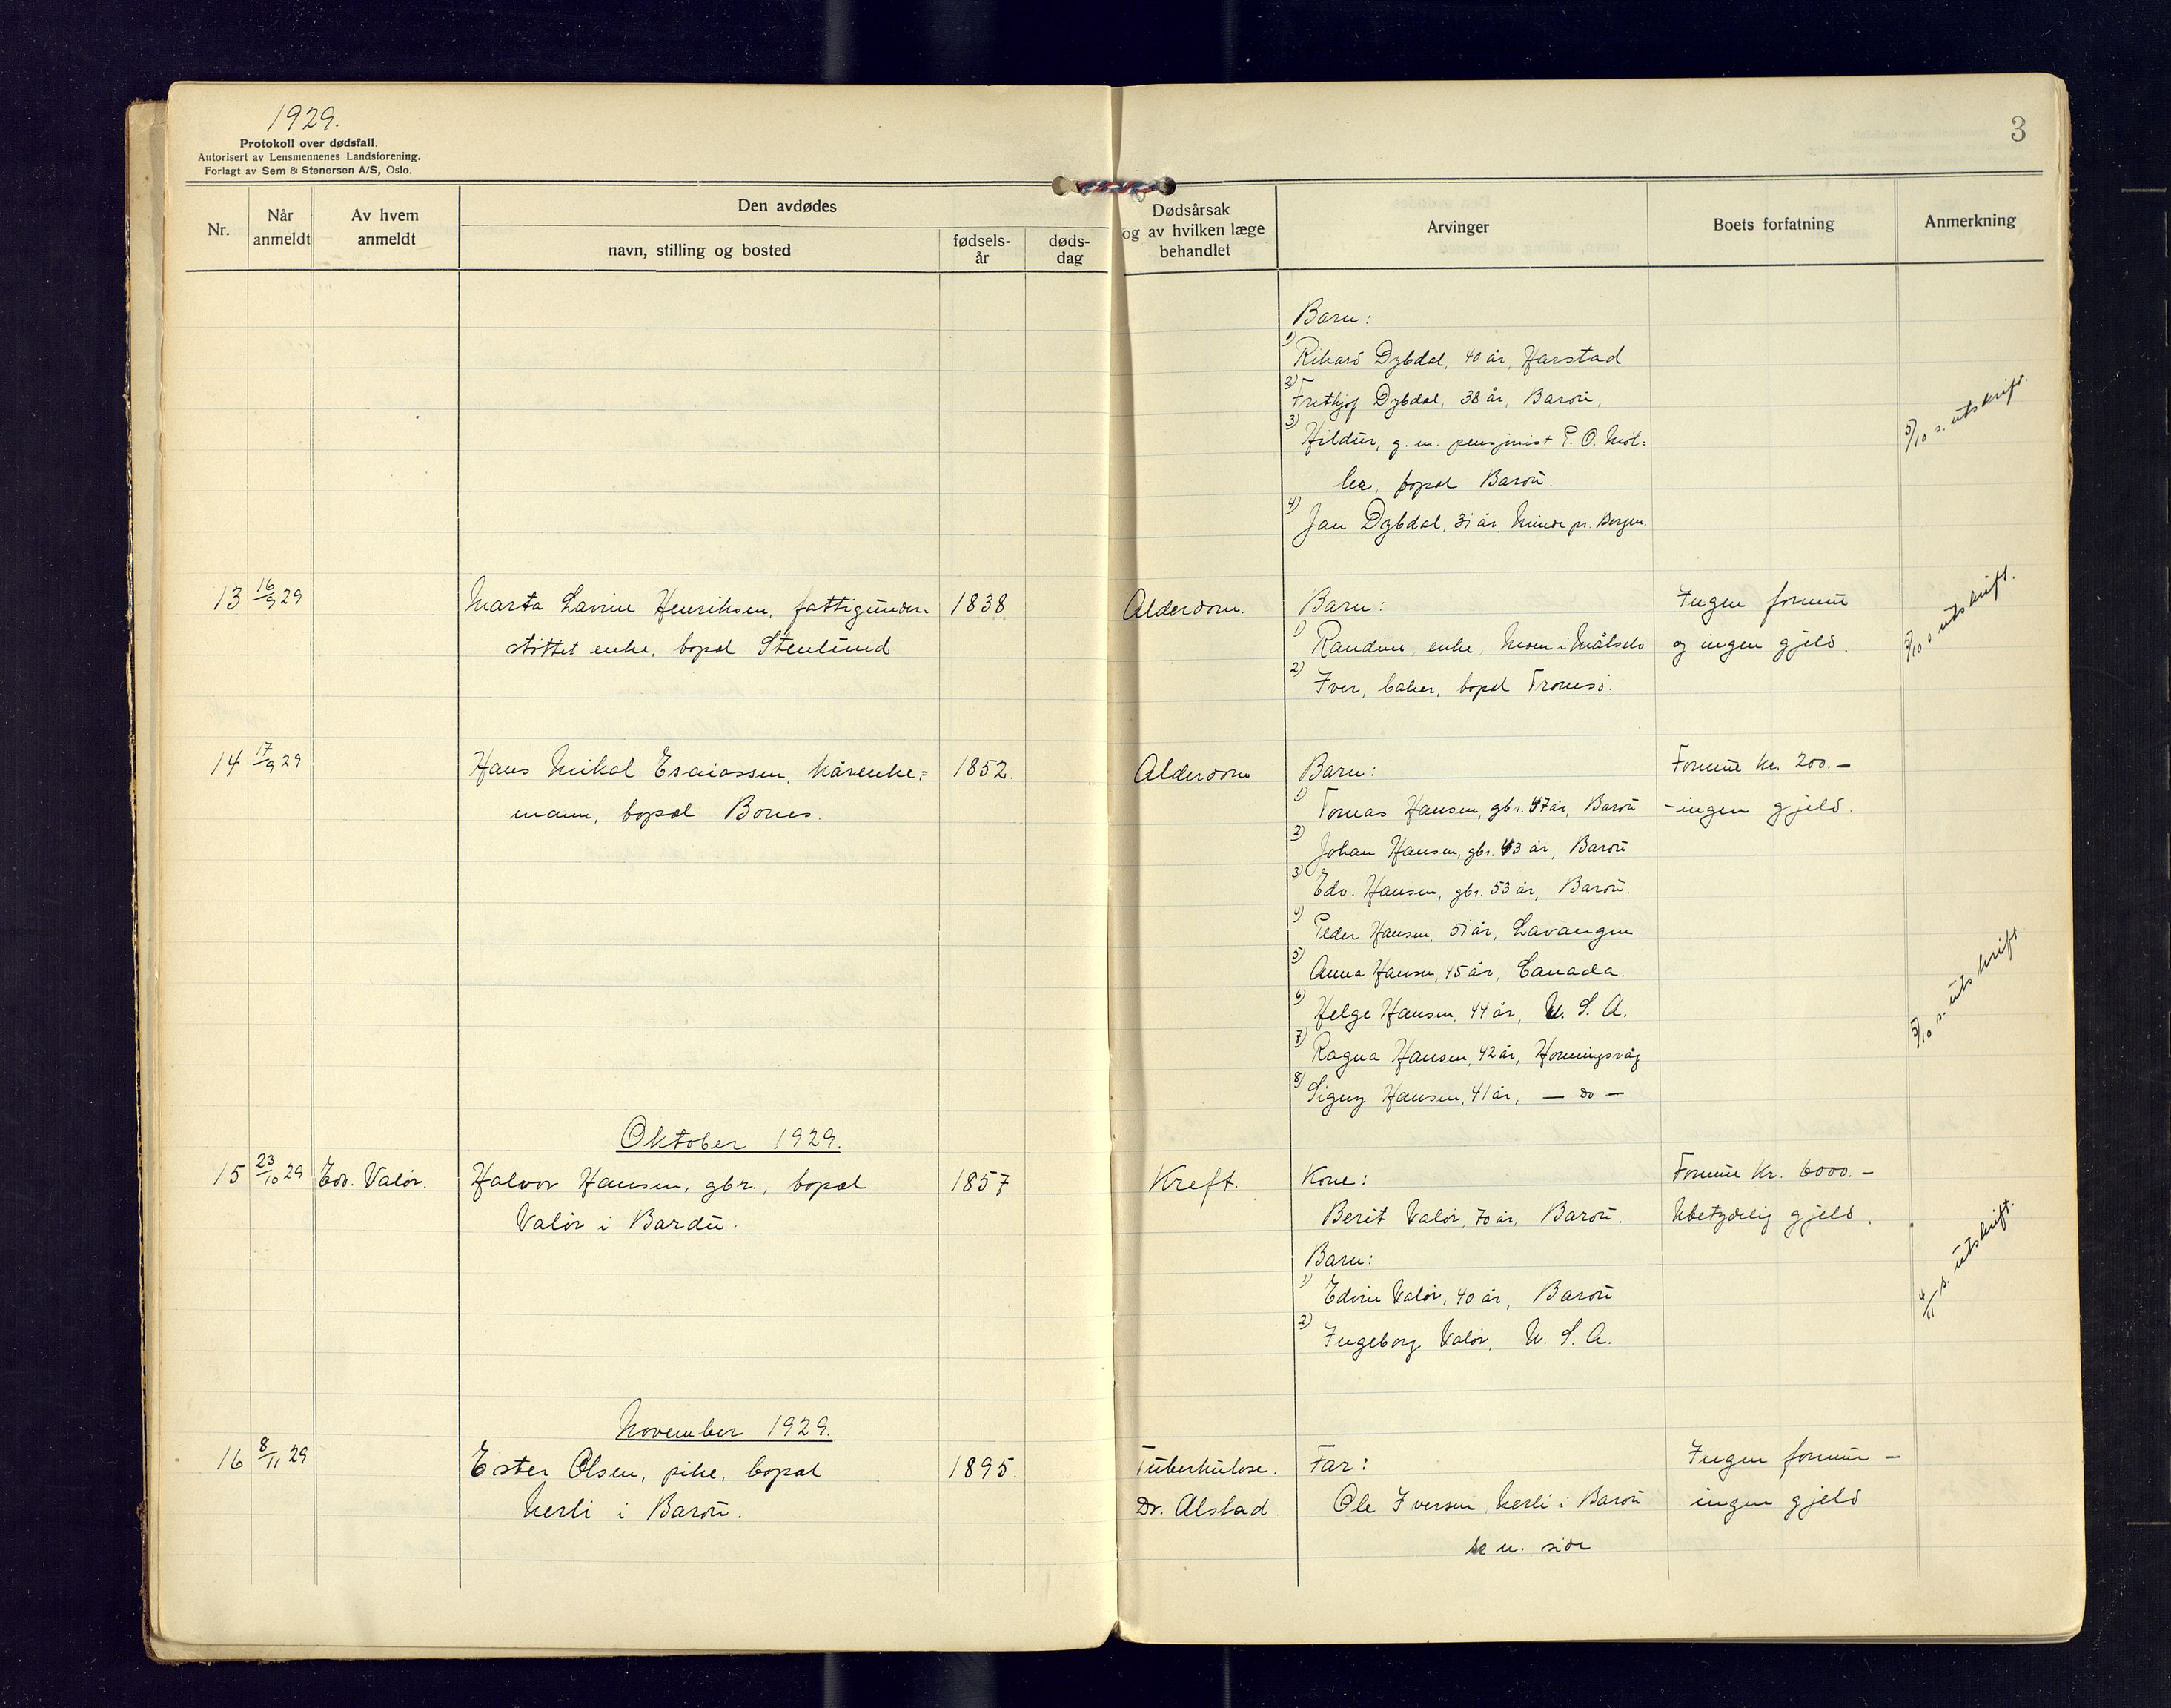 1929.
Protokoll over dødsfall.
Autorisert av Lensmennenes Landsforening.
Forlagt av Sem & Stenersen A/S, Oslo.
3
Nr.
Når anmeldt
Av hvem anmeldt
Den avdødes
navn, stilling og bosted
fødsels-år
døds-dag
Dødsårsak og av hvilken læge behandlet
Arvinger
Boets forfatning
Anmerkning
Barn:
1) Rikard Dybdal, 40 år, Harstad
2) Frethjof Dybdal, 38 år, Bardu,
3) Hildur, g. m. pensjonist P. O. Mol=
bopæl Bardu.
4) Jan Dybdal, 31 år, Minde pr. Bergen.
5/10 s. utskrift.
13 16/9 29 Marta Lavine Henriksen, fattigunder- 1838 Alderdom. Barn: Ingen formue
støttet enke, bopæl Stenlund 1) Randine, enke, Moen i Målselv og ingen gjeld.
2) Iver, baker, bopæl Tromsø.
5/10 s. utskrift.
14 17/9 29 Hans Mikal Esaiassen, kårenke= 1852. Alderdom Barn: Formue kr. 200.-
mann, bopæl Bones. 1) Tomas Hansen, gbr. 47 år, Bardu - ingen gjeld.
2) Johan Hansen, gbr. 43 år, Bardu
3) Edv. Hansen, gbr. 53 år, Bardu.
4) Peder Hansen, 51 år, Lavangen
5) Anna Hansen, 45 år, Canada.
6) Helge Hansen, 44 år, U. S. A.
7) Ragna Hansen, 42 år, Honningsvåg
8) Signy Hansen, 41 år, — do —
5/10 s. utskrift
Oktober 1929.
15 23/10 29 Edv. Valør. Halvor Hansen, gbr., bopæl 1857 Kreft. Kone: Formue Kr. 6000.-
Valør i Bardu. Berit Valør, 70 år, Bardu. Ubetydelig gjeld.
Barn:
1) Edvin Valør, 40 år, Bardu
2) Ingeborg Valør, U. S. A.
4/11 s. utskrift.
November 1929.
16 8/11 29 Ester Olsen, pike, bopæl 1895. Tuberkulose. Far: Ingen formue -
Nerli i Bardu. Dr. Alstad. Ole Iversen, Nerli i Bardu ingen gjeld
se n. side